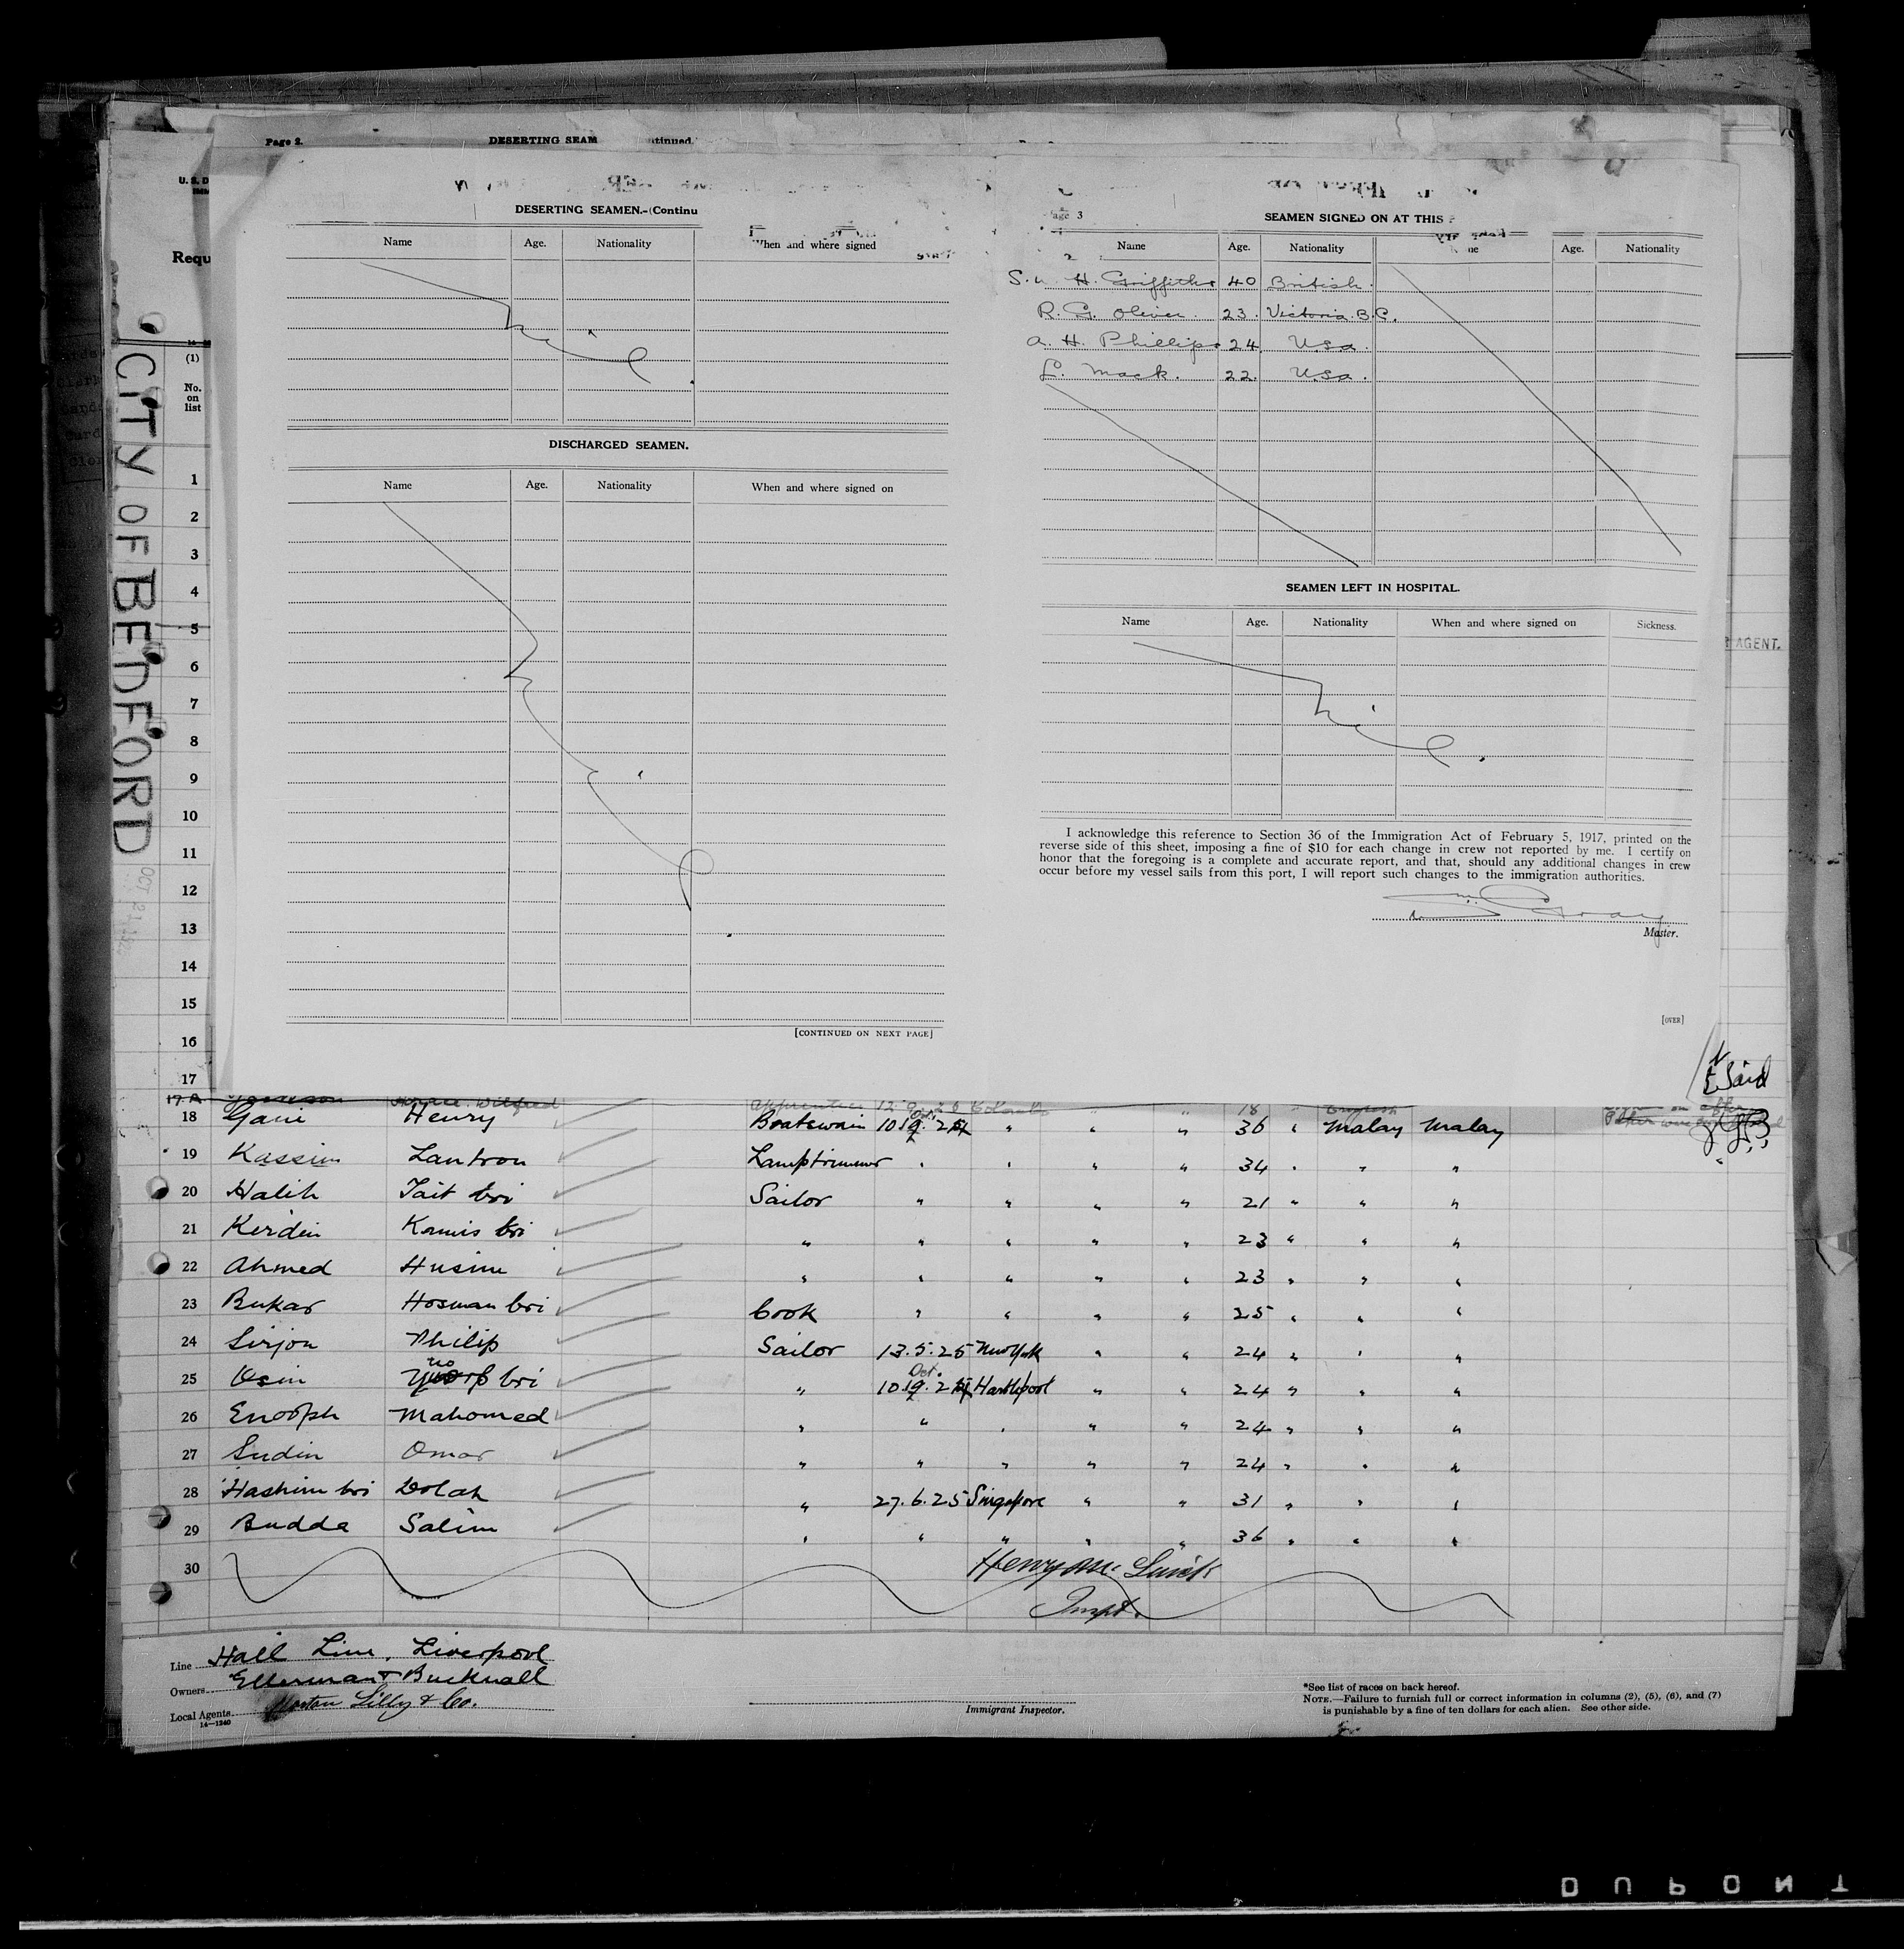 Page 2.
DESERTING SEAM
ntinued.
U. S. D
IMM
Requ
(1)
No.
on
list
CITY OF BEDFORD
OCT 21
DESERTING SEAMEN.-(Continu
Name Age. Nationality When and where signed
Nil.
DISCHARGED SEAMEN.
Name Age. Nationality When and where signed on
Nil.
[CONTINUED ON NEXT PAGE]
age 3
SEAMEN SIGNED ON AT THIS
Name Age. Nationality me Age. Nationality
H. Griffiths 40 British.
R. G. Oliver. 23. Victoria B.C.
A. H. Phillips 24. USa.
L. Mack. 22. USa.
SEAMEN LEFT IN HOSPITAL.
Name Age. Nationality When and where signed on Sickness.
Nil.
I acknowledge this reference to Section 36 of the Immigration Act of February 5, 1917, printed on the
reverse side of this sheet, imposing a fine of $10 for each change in crew not reported by me. I certify on
honor that the foregoing is a complete and accurate report, and that, should any additional changes in crew
occur before my vessel sails from this port, I will report such changes to the immigration authorities.
Gray
Master.
[OVER]
R AGENT.
1
2
3
4
5
6
7
8
9
10
11
12
13
14
15
16
17
17 A Wilfred Apprentice Colombo 18 English
18 Gani Henry Boatswain 10 Oct. 24 " " " 36 " Malay Malay
19 Kassim Lantron Lamptrimmer " " " " 34 " " "
20 Halih Tait bri Sailor " " " " 21 " " "
21 Kerdin Kamis bri " " " " " 23 " " "
22 Ahmed Husim " " " " " 23 " " "
23 Bukar Hosman bri Cook " " " " 25 " " "
24 Sirjon Philip Sailor 13.5.25 New York " " 24 " " "
25 Osin bri " 10 Oct. Hartlepool " " 24 " " "
26 Enooph Mahomed " " " " " 24 " " "
27 Sudin Omar " " " " " 24 " " "
28 Hashim bri Dolah " 27.6.25 Singapore " " 31 " " "
29 Budda Salim " " " " " 36 " " "
30
Inspt.
Line Hall Line, Liverpool
Owners Ellerman & Bucknall
Local Agents Norton Lilly & Co.
14—1240
Immigrant Inspector.
*See list of races on back hereof.
NOTE.—Failure to furnish full or correct information in columns (2), (5), (6), and (7)
is punishable by a fine of ten dollars for each alien. See other side.
DUPONT